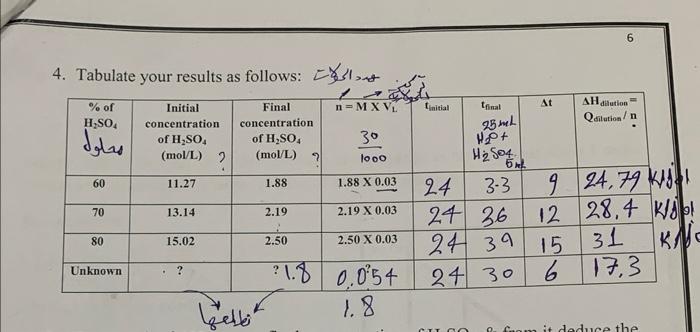 6
4. Tabulate your results as follows: عدد المولات
% of H₂SO₄ محلول
Initial concentration of H₂SO₄ (mol/L) ?
Final concentration of H₂SO₄ (mol/L) ?
n = M X V_L 30/1000
t_initial
t_final 25 mL H₂O + H₂SO₄ 5 mL
Δt
ΔH_dilution = Q_dilution / n
60 11.27 1.88 1.88 X 0.03 24 3·3 9 24,79 KJ/mol
70 13.14 2.19 2.19 X 0.03 24 36 12 28,4 KJ/mol
80 15.02 2.50 2.50 X 0.03 24 39 15 31
Unknown ? ? 1.8 0,0?54 24 30 6 17,3
نطلعها 1.8
from it deduce the